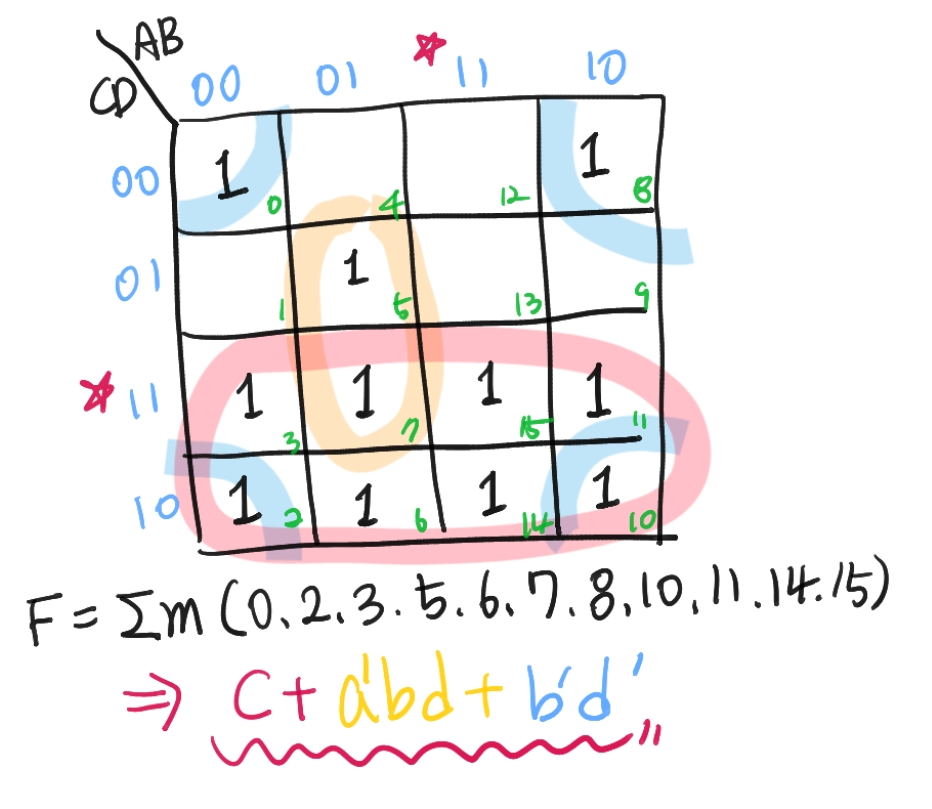 AB
CD
00 01 ☆ 11 10
00 1 0 4 12 1 8
01 1 1 5 13 9
☆ 11 1 3 1 7 1 15 1 11
10 1 2 1 6 1 14 1 10
F = Σm (0. 2. 3. 5. 6. 7. 8. 10. 11. 14. 15)
⇒ C + a'bd + b'd' "